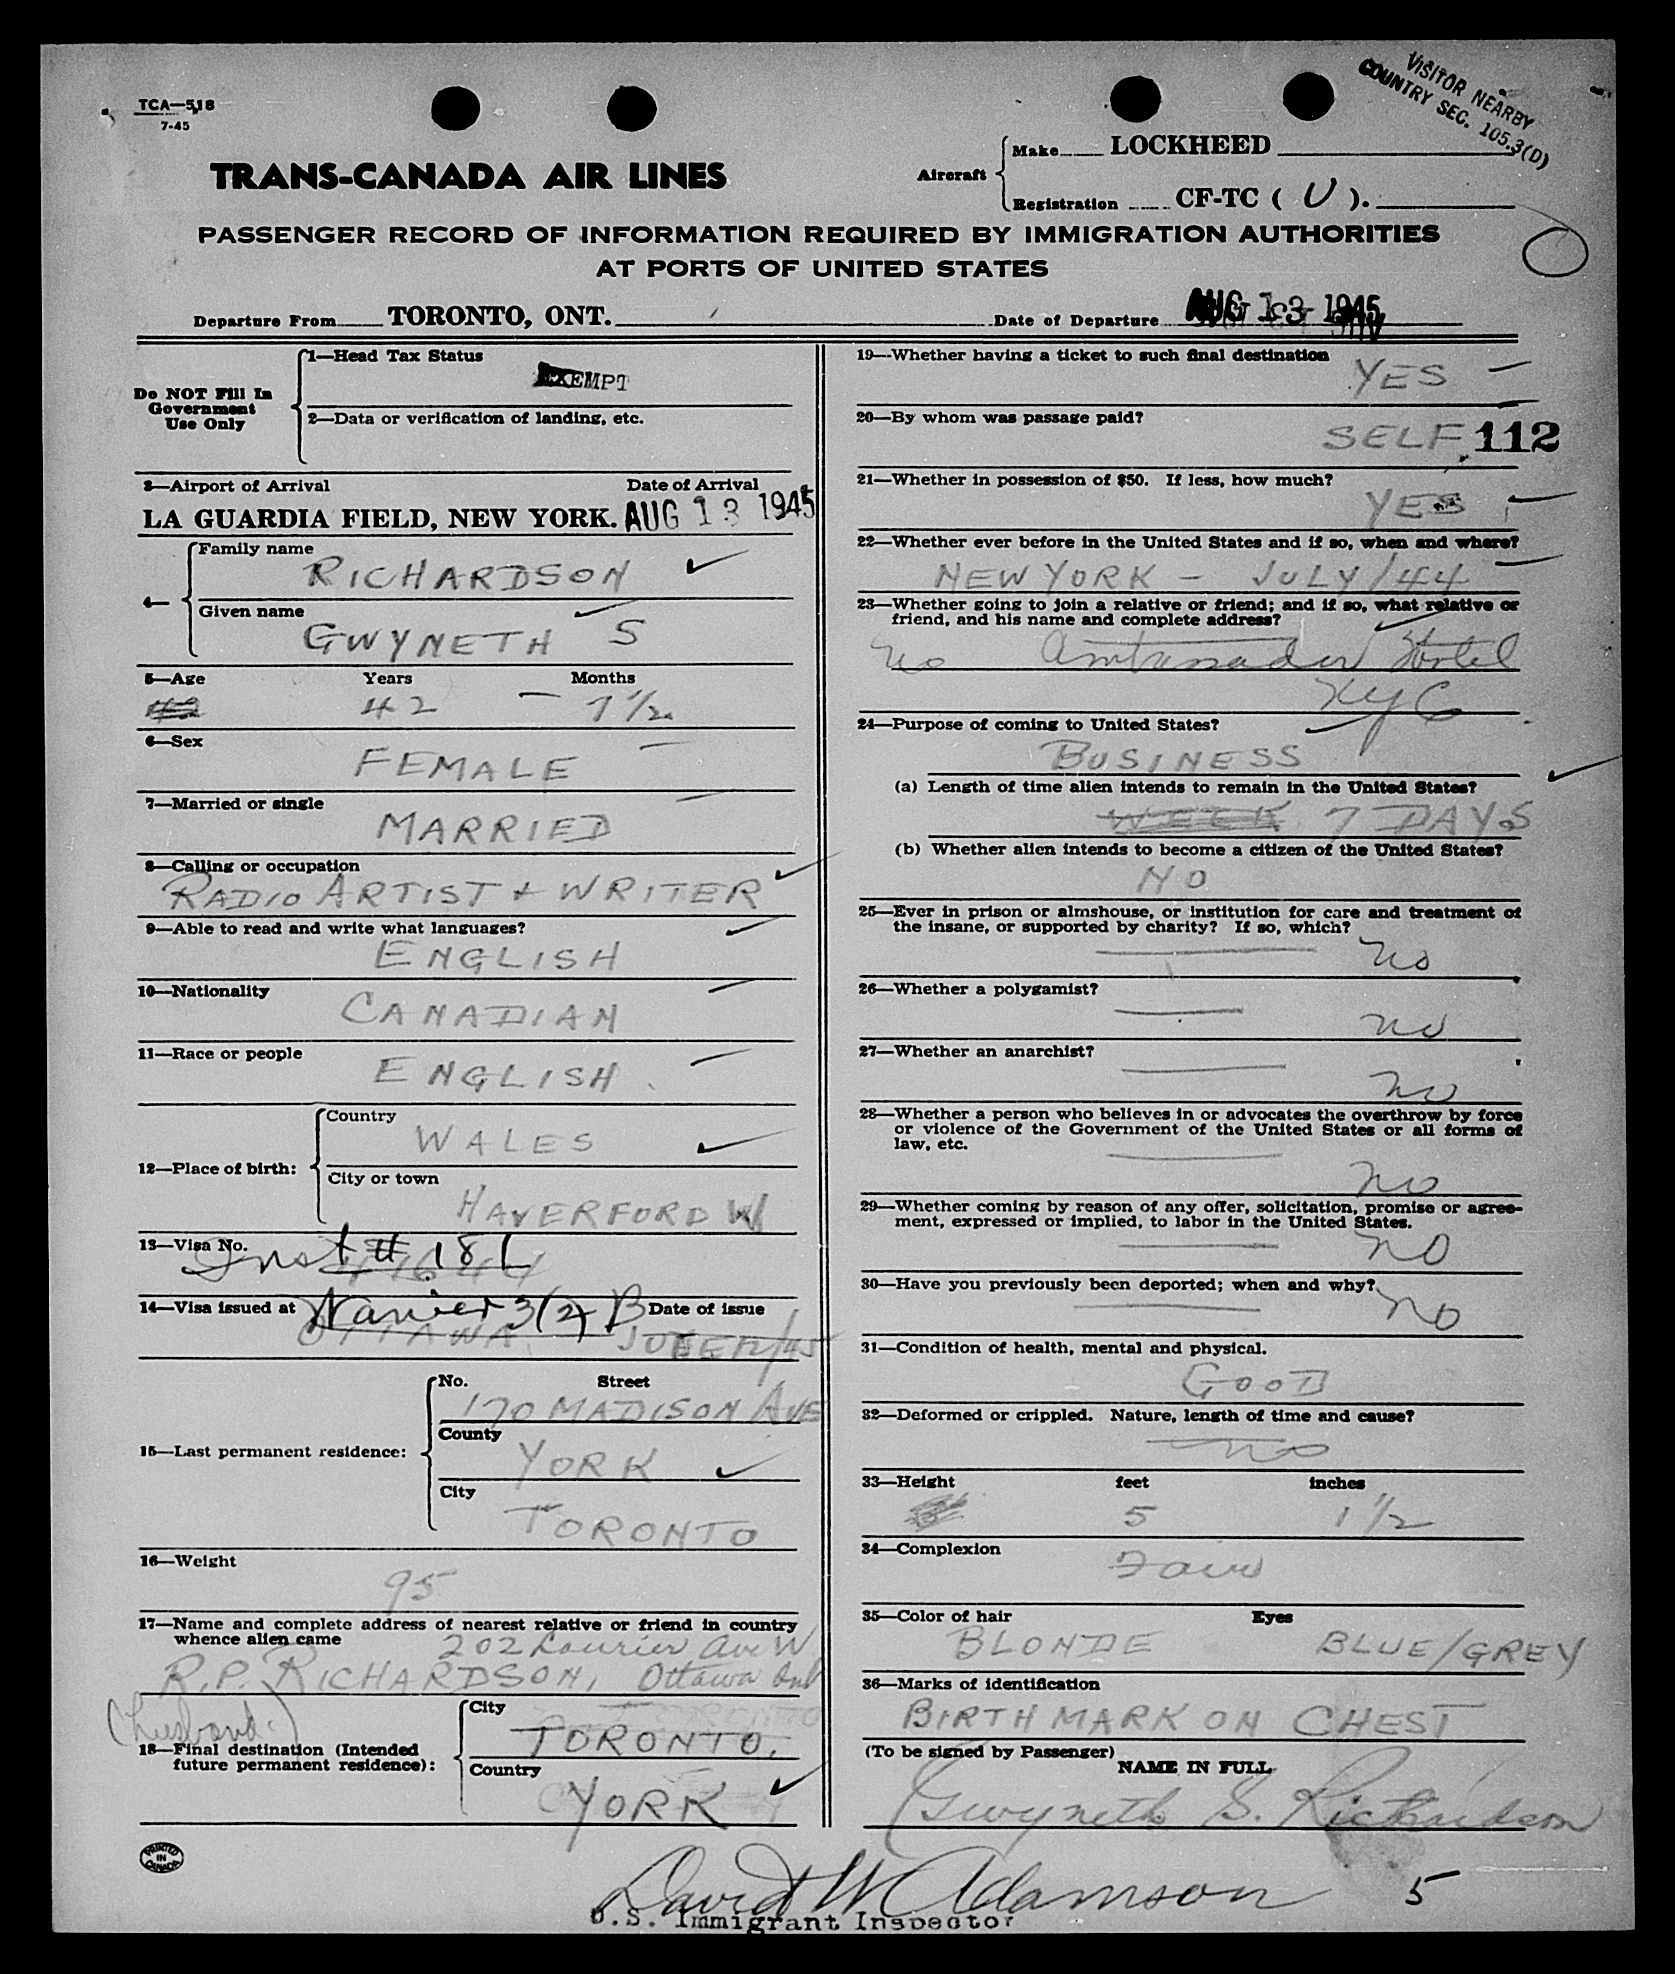 TCA—518
7-45
VISITOR NEARBY
COUNTRY SEC. 105.3(D)
TRANS-CANADA AIR LINES
Aircraft
Make LOCKHEED
Registration CF-TC ( U ).
PASSENGER RECORD OF INFORMATION REQUIRED BY IMMIGRATION AUTHORITIES
AT PORTS OF UNITED STATES
Departure From TORONTO, ONT. Date of Departure AUG 13 1945
Do NOT Fill In
Government
Use Only
1—Head Tax Status
EXEMPT
2—Data or verification of landing, etc.
3—Airport of Arrival Date of Arrival
LA GUARDIA FIELD, NEW YORK. AUG 13 1945
4—
Family name
RICHARDSON
Given name
GWYNETH S
5—Age Years Months
42 7 1/2
6—Sex
FEMALE
7—Married or single
MARRIED
8—Calling or occupation
RADIO ARTIST + WRITER
9—Able to read and write what languages?
ENGLISH
10—Nationality
CANADIAN
11—Race or people
ENGLISH
12—Place of birth:
Country
WALES
City or town
HAVERFORD W
13—Visa No.
Inst # 18 L
14—Visa issued at Waiver 3(2) B Date of issue
OTTAWA
15—Last permanent residence:
No. Street
170 MADISON AVE
County
YORK
City
TORONTO
16—Weight
95
17—Name and complete address of nearest relative or friend in country
whence alien came 202 Laurier Ave W
R.P. RICHARDSON, Ottawa Ont
(husband.)
18—Final destination (Intended
future permanent residence):
City
TORONTO.
Country
YORK
PRINTED
IN
CANADA
19—Whether having a ticket to such final destination
YES
20—By whom was passage paid?
SELF 112
21—Whether in possession of $50. If less, how much?
YES
22—Whether ever before in the United States and if so, when and where?
NEW YORK – JULY/44
23—Whether going to join a relative or friend; and if so, what relative or
friend, and his name and complete address?
no Ambassador Hotel
NYC
24—Purpose of coming to United States?
BUSINESS
(a) Length of time alien intends to remain in the United States?
WEEK 7 DAYS
(b) Whether alien intends to become a citizen of the United States?
NO
25—Ever in prison or almshouse, or institution for care and treatment of
the insane, or supported by charity? If so, which?
no
26—Whether a polygamist?
no
27—Whether an anarchist?
no
28—Whether a person who believes in or advocates the overthrow by force
or violence of the Government of the United States or all forms of
law, etc.
no
29—Whether coming by reason of any offer, solicitation, promise or agree-
ment, expressed or implied, to labor in the United States.
no
30—Have you previously been deported; when and why?
no
31—Condition of health, mental and physical.
GOOD
32—Deformed or crippled. Nature, length of time and cause?
no
33—Height feet inches
5 1 1/2
34—Complexion
Fair
35—Color of hair Eyes
BLONDE BLUE/GREY
36—Marks of identification
BIRTH MARK ON CHEST
(To be signed by Passenger)
NAME IN FULL
Gwyneth S. Richardson
David W Adamson
U.S. Immigrant Inspector
5